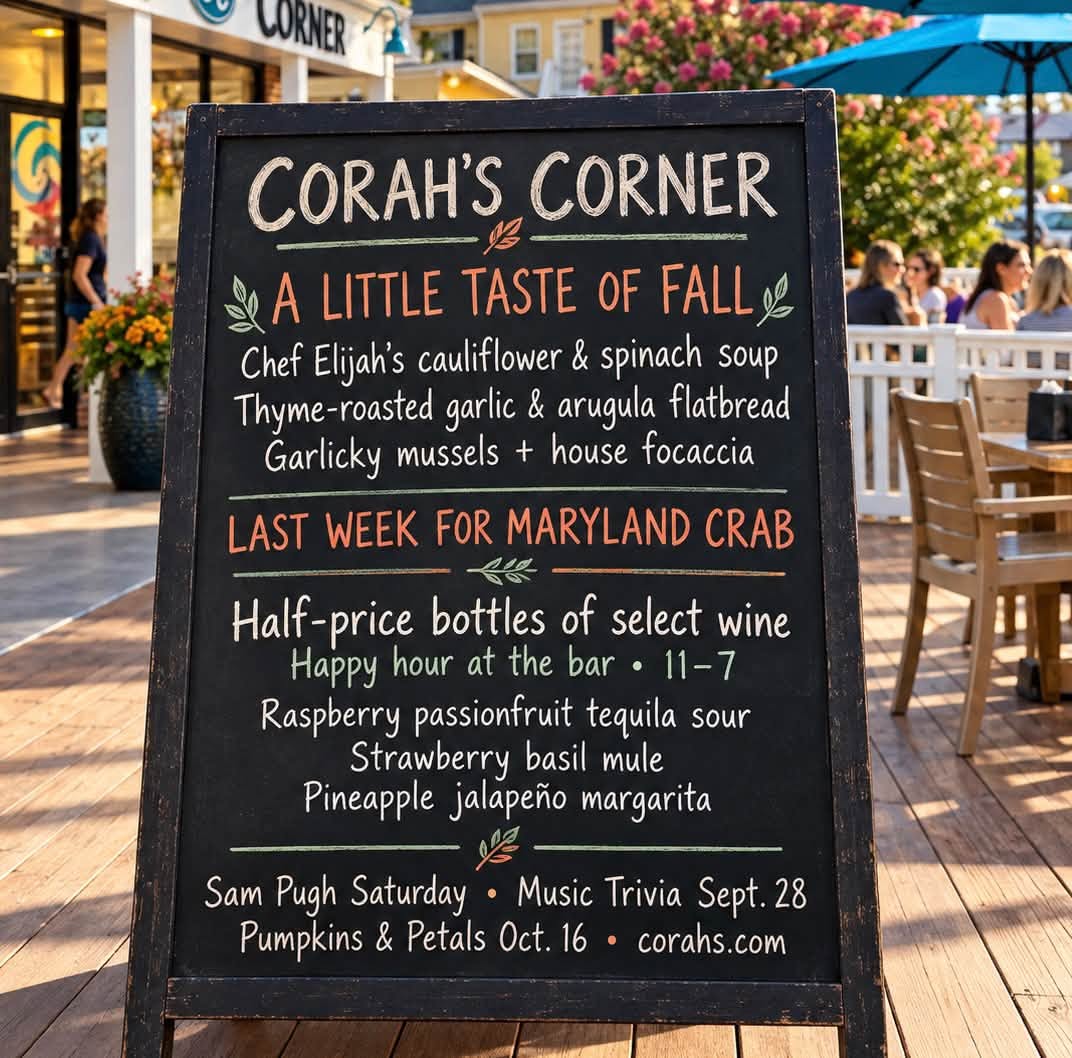 CORNER
CORAH'S CORNER
A LITTLE TASTE OF FALL
Chef Elijah's cauliflower & spinach soup
Thyme-roasted garlic & arugula flatbread
Garlicky mussels + house focaccia
LAST WEEK FOR MARYLAND CRAB
Half-price bottles of select wine
Happy hour at the bar • 11–7
Raspberry passionfruit tequila sour
Strawberry basil mule
Pineapple jalapeño margarita
Sam Pugh Saturday • Music Trivia Sept. 28
Pumpkins & Petals Oct. 16 • corahs.com